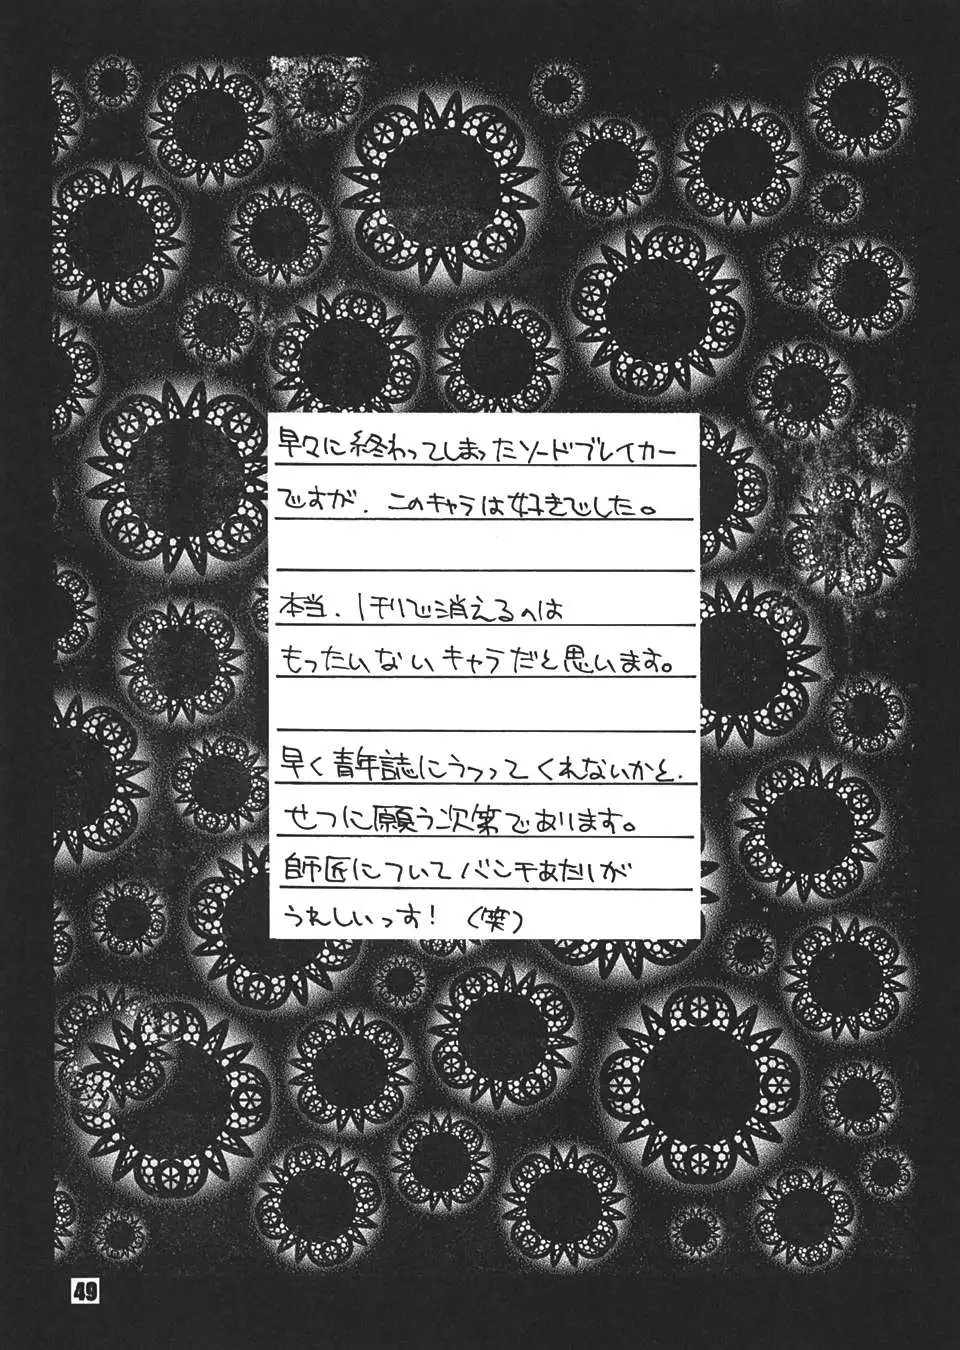 早々に終わってしまったソードブレイカー
ですが、このキャラは好きでした。
本当、1刊で消えるのは
もったいないキャラだと思います。
早く青年誌にうつってくれないかと、
せつに願う次第であります。
師匠についてパンチあたりが
うれしいっす！（笑）
49